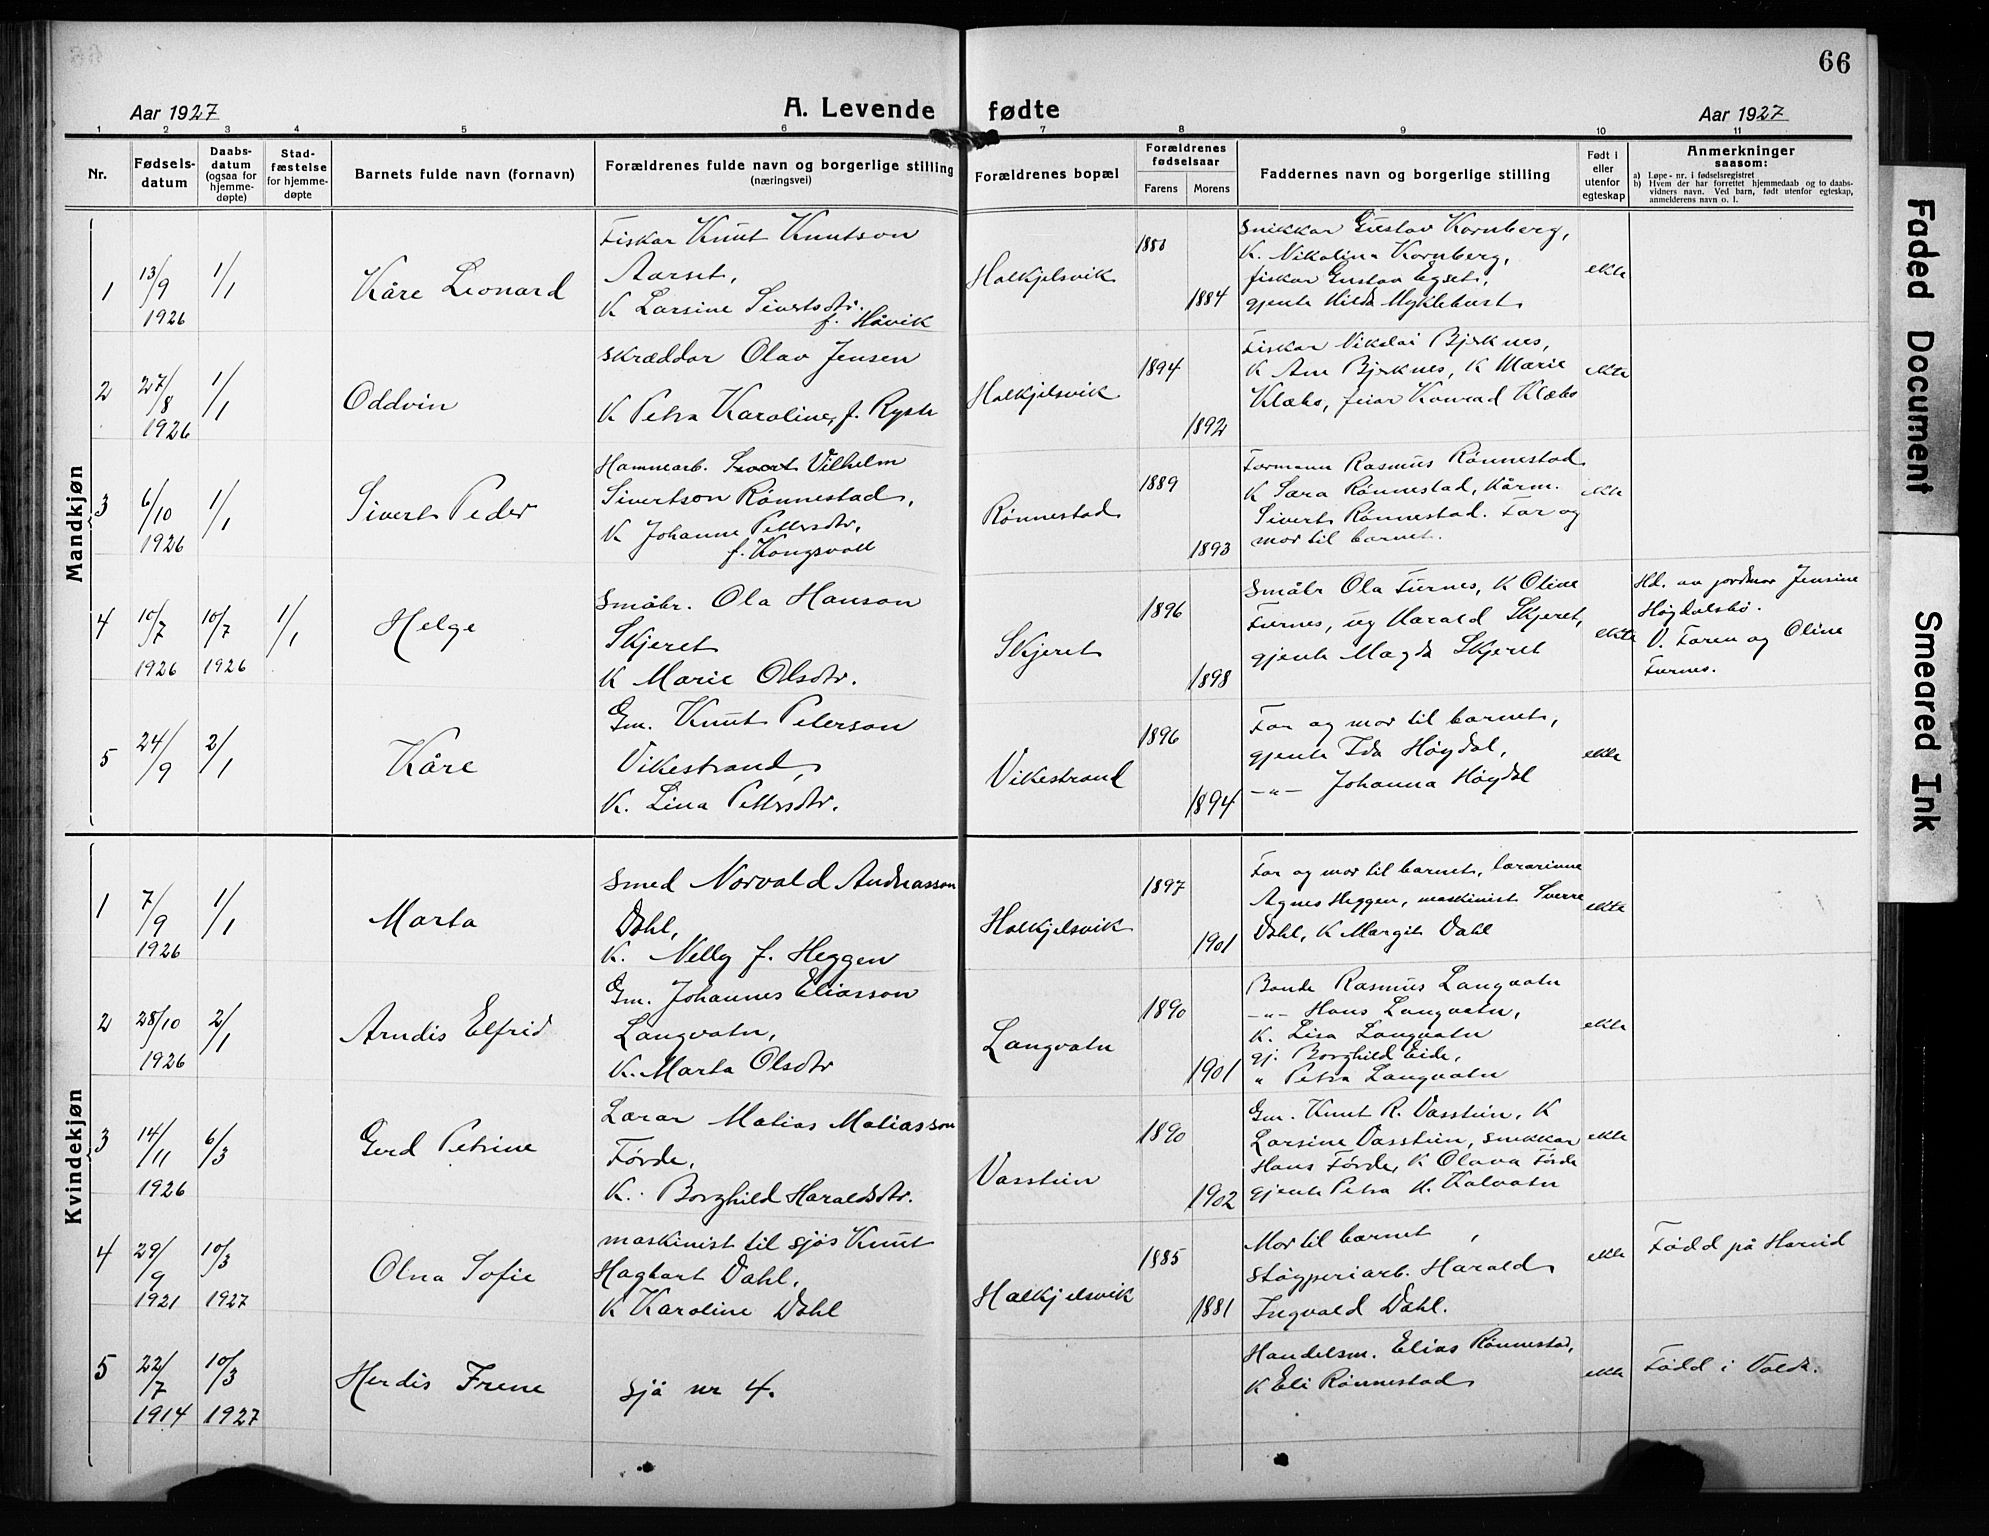 66
Aar 1927
A. Levende fødte
Aar 1927
1 2 3 4 5 6 7 8 9 10 11
Nr.
Fødsels-datum
Daabs-datum (ogsaa for hjemme-døpte)
Stad-fæstelse for hjemme-døpte
Barnets fulde navn (fornavn)
Forældrenes fulde navn og borgerlige stilling
(næringsvei)
Forældrenes bopæl
Forældrenes fødselsaar
Farens Morens
Faddernes navn og borgerlige stilling
Født i eller utenfor egteskap
Anmerkninger
saasom:
a) Løpe-nr. i fødselsregistret
b) Hvem der har forrettet hjemmedaab og to daabs-
vidners navn. Ved barn, født utenfor egteskap,
anmelderens navn o. l.
Mandkjøn
1
13/9 1926
1/1
Kåre Leonard
Fiskar Knut Knutson
Aarset,
K Larsine Sivertsdtr.
f. Håvik
Halkjelsvik
1884
Snikkar Gustav Kornberg,
K. Nikolina Kornberg,
fiskar Gustav Egset,
gjente Hilda Myklebust
ekte
2
27/8 1926
1/1
Oddvin
Skræddar Olav Jensen
K Petra Karoline, f. Ryste
Halkjelsvik
1894
1892
Fiskar Nikolai Bjerknes,
K Ane Bjerknes, K Marie
Klæbo, feiar Konrad Klæbo
ekte
3
6/10 1926
1/1
Sivert Peder
Hamnearb. Sivert Vilhelm
Sivertson Rönnestad,
K Johanne Pettersdtr,
f. Kongsvoll
Rönnestad
1889
1893
Formann Rasmus Rönnestad
K Sara Rönnestad, kårm.
Sivert Rönnestad. Far og
mor til barnet.
ekte
4
10/7 1926
10/7 1926
1/1
Helge
Småbr. Ola Hanson
Skjeret
K Marie Olsdtr.
Skjeret
1896
1898
Småbr Ola Furnes, K Oline
Furnes, ug Harald Skjeret,
gjente Magda Skjeret
ekte
Hd. av jordmor Jensine
Høgdalsbø.
V. Faren og Oline
Furnes.
5
24/9
2/1
Kåre
Gm. Knut Peterson
Vikestrand,
K. Lina Pettersdtr.
Vikestrand
1896
1894
Far og mor til barnet,
gjente Ida Høydal,
-"- Johanna Høydal
ekte
Kvindekjøn
1
7/9 1926
1/1
Marta
Smed Norvald Andreasson
Dahl,
K. Nelly f. Heggen
Halkjelsvik
1897
1901
Far og mor til barnet, lærarinne
Agnes Heggen, maskinist Sverre
Dahl, K Margit Dahl
ekte
2
28/10 1926
2/1
Arndis Elfrid
Gm. Johannes Eliasson
Langvatn,
K. Marta Olsdtr
Langvatn
1890
1901
Bonde Rasmus Langvatn
-"- Hans Langvatn,
K. Lisa Langvatn
gj. Borghild Eide,
" Petra Langvatn
ekte
3
14/11 1926
6/3
Gerd Petrine
Lærar Matias Matiasson
Förde,
K. Borghild Haraldsdtr.
Vasstien
1890
1902
Gm. Knut R. Vasstien, K
Larsine Vasstien, snikkar
Hans Förde, K Olava Förde
gjente Petra K. Kalvatn
ekte
4
29/9 1921
10/3 1927
Olna Sofie
maskinist til sjös Knut
Hagbart Dahl,
K Karoline Dahl
Halkjelsvik
1885
1881
Mor til barnet,
Støyperiarb. Harald
Ingvald Dahl.
ekte
Fødd på Hareid
5
22/7 1914
10/3 1927
Herdis Irene
sjå nr 4.
Handelsm. Elias Rönnestad,
K Eli Rönnestad
ekte
Fødd i Volda.
Faded Document
Smeared Ink